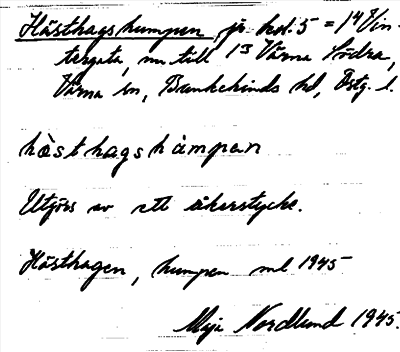 Hästhagshumpen, jo hrd. 5 = 1⁴ Vin-
tergata, nu till 1³ Värna Södra,
Värna sn, Bankekinds hd, Östg. l.
hàsthagshàmpan
Utgörs av ett åkerstycke.
Hästhagen, humpen ml 1945
Maja Nordlund 1945.